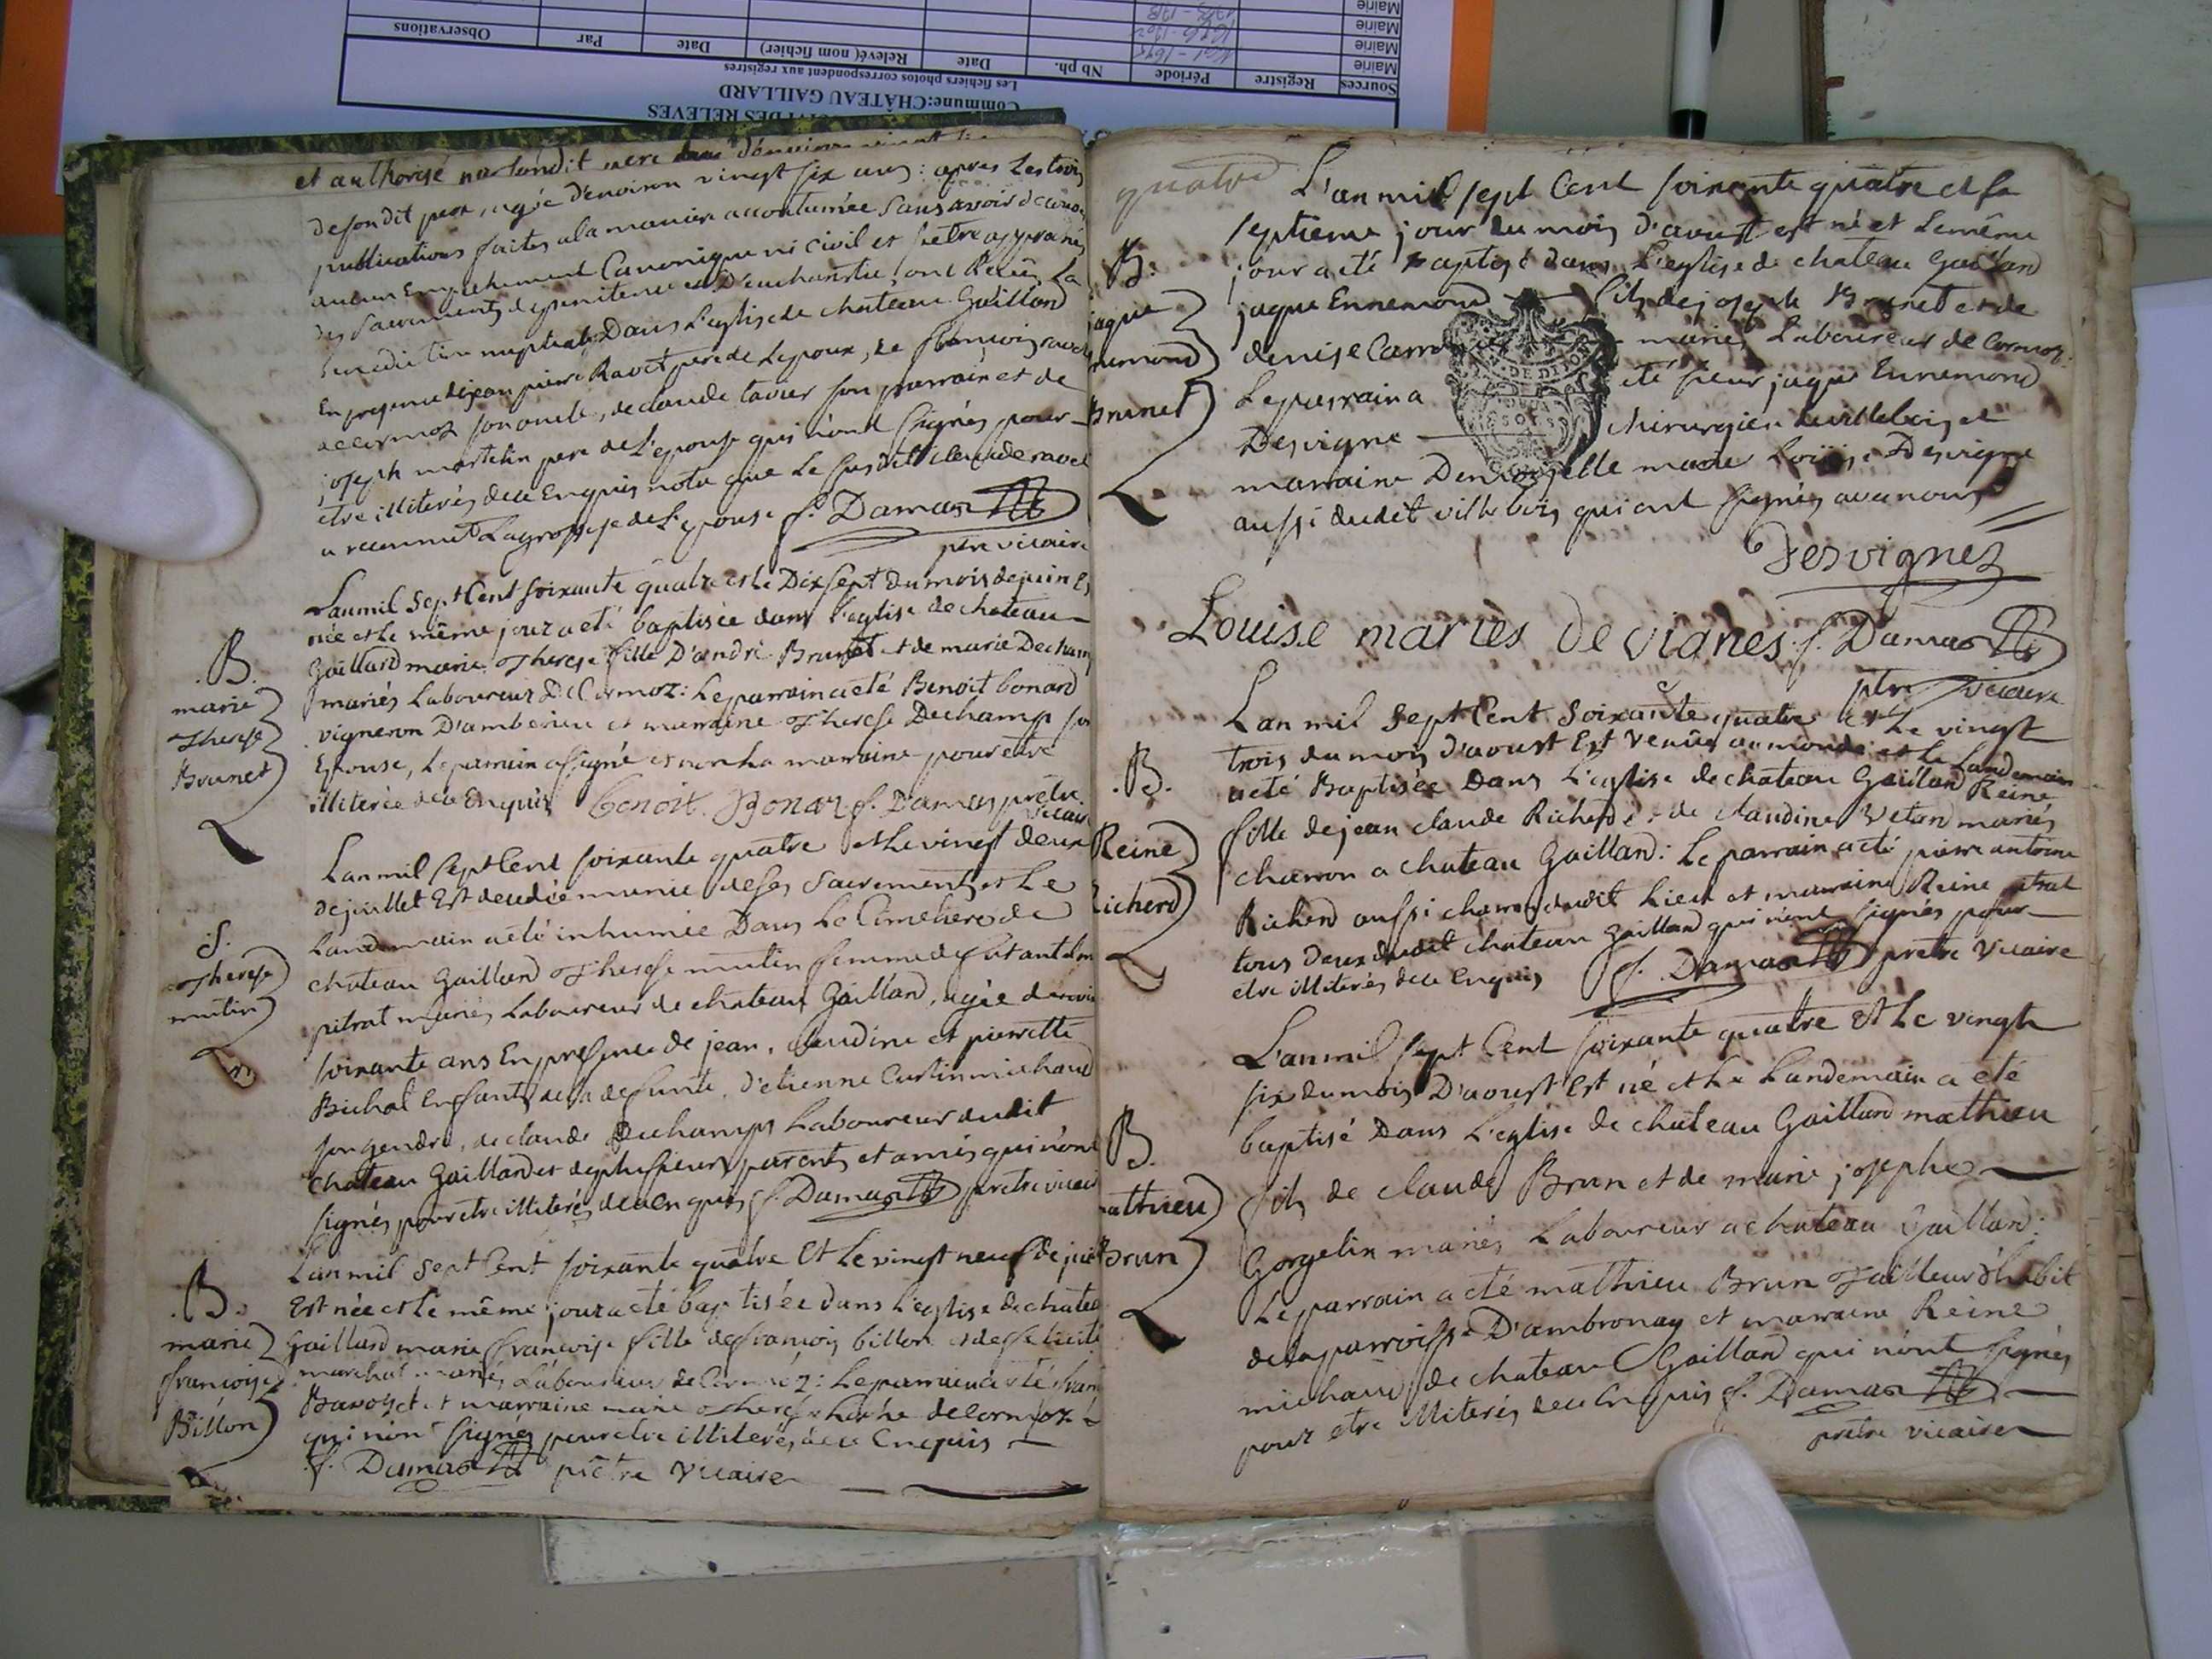 Commune:CHÂTEAU GAILLARD
Les fichiers photos correspondent aux registres
Sources Registre Période Nb ph. Date Relevé( nom fichier) Date Par Observations
Mairie
Mairie
Mairie
Mairie
et authorisé
defondit pere, agée d'environ vingt six ans: apres les trois
publications faites a la maniere accoutumée sans avoir decouve
aucun Empechement Canonique ni civil et
des sacrements de penitence et D'eucharistie, ont Recu La
benediction nuptiale Dans l'eglise de chateau Gaillard
En presence de jean pierre Ravet pere de Lepoux, de francois ravet
de cormoz son oncle, de claude tavier son parrain et de
joseph martelin pere de L'epouse qui n'ont signés pour
etre illiterés de ce Enquis nota que Le susdit claude ravet
a reconnut La grossesse de L'epouse f. Damas
ptre vicaire
.B.
marie
Therese
Brunet
Lan mil Sept Cent soixante quatre et le Dix sept du mois de juin Est
née et le même jour a eté baptisée dans l'eglise de chateau
Gaillard marie Therese fille D'andré Brunet et de marie Decham
mariés Laboureur De Cormoz: Le parrain a eté Benoit bonard
vigneron D'amberieu et marraine Therese Dechamp son
Epouse, Le parrain a signé et non La marraine pour etre
illiterée de ce Enquis benoit. Bonar f. Damas pretre
vicaire
S.
Therese
mutin
Lan mil sept Cent soixante quatre et le vingt deux
de juillet Est decedée munie de ses Sacrements et Le
Landemain a eté inhumée Dans Le Cimetiere de
chateau Gaillard Therese mutin femme de
pitrat mariés Laboureur de chateau Gaillard, agée d'environ
soixante ans En presence de jean, claudine et pierrette
Bichat enfants de la defunte, d'etienne Curtin michaud
son gendre, de claude Dechamps Laboureur dudit
chateau Gaillard et de plusieurs parents et amis qui n'ont
signés pour etre illiterés de ce enquis f. Damas pretre vicaire
.B.
marie
françoise
Billon
Lan mil Sept Cent soixante quatre Et Le vingt neuf de juillet
Est née et le même jour a eté baptisée dans l'eglise de chateau
Gaillard marie françoise fille de françois billon et de
marchat mariés Laboureur de Cormoz: Le parrain a eté
et marraine marie Therese de Cormoz
qui n'ont signés pour etre illiterés de ce Enquis
f. Damas prêtre Vicaire
quatre
B.
jaque
nnemond
Brunet
L'an mil sept Cent soixante quatre et le
septieme jour du mois d'aoust est né et Le même
jour a eté Baptisé dans L'eglise de chateau Gaillard
jaque Ennemond fils de joseph Brunet et de
denise mariés Laboureur de Cormoz.
Le parrain a eté sieur jaque Ennemond
Desvigne chirurgien de villebois et
marraine Demoiselle marie Loüise Desvigne
aussi dudit villebois qui ont signés avec nous
Desvignes
Louise maries de vignes f. Damas
ptre vicaire
.B.
Reine
Richerd
Lan mil Sept Cent Soixante quatre et Le vingt
trois du mois d'aoust Est Venüe au monde et Le Landemain
a eté Baptisée Dans L'eglise de chateau Gaillard Reine
fille de jean claude Richerd et de claudine Vetard mariés
charron a chateau Gaillard: Le parrain a eté pierre antoine
Richerd aussi charron dudit Lieu et marraine Reine pitrat
tous deux dudit chateau gaillard qui n'ont signés pour
etre illiterés de ce Enquis f. Damas pretre Vicaire
B.
athieu
Brun
L'an mil sept Cent soixante quatre Et Le vingt
six du mois D'aoust Est né et Le Landemain a eté
baptisé Dans L'eglise de chateau Gaillard mathieu
fils de claude Brun et de marie josephe
Gorgelin mariés Laboureur a chateau Gaillard:
Le parrain a eté mathieu Brun Tailleur d'habit
de la parroisse D'ambronay et marraine Reine
michaud de chateau Gaillard qui n'ont signés
pour etre illiterés de ce Enquis f. Damas
pretre vicaire